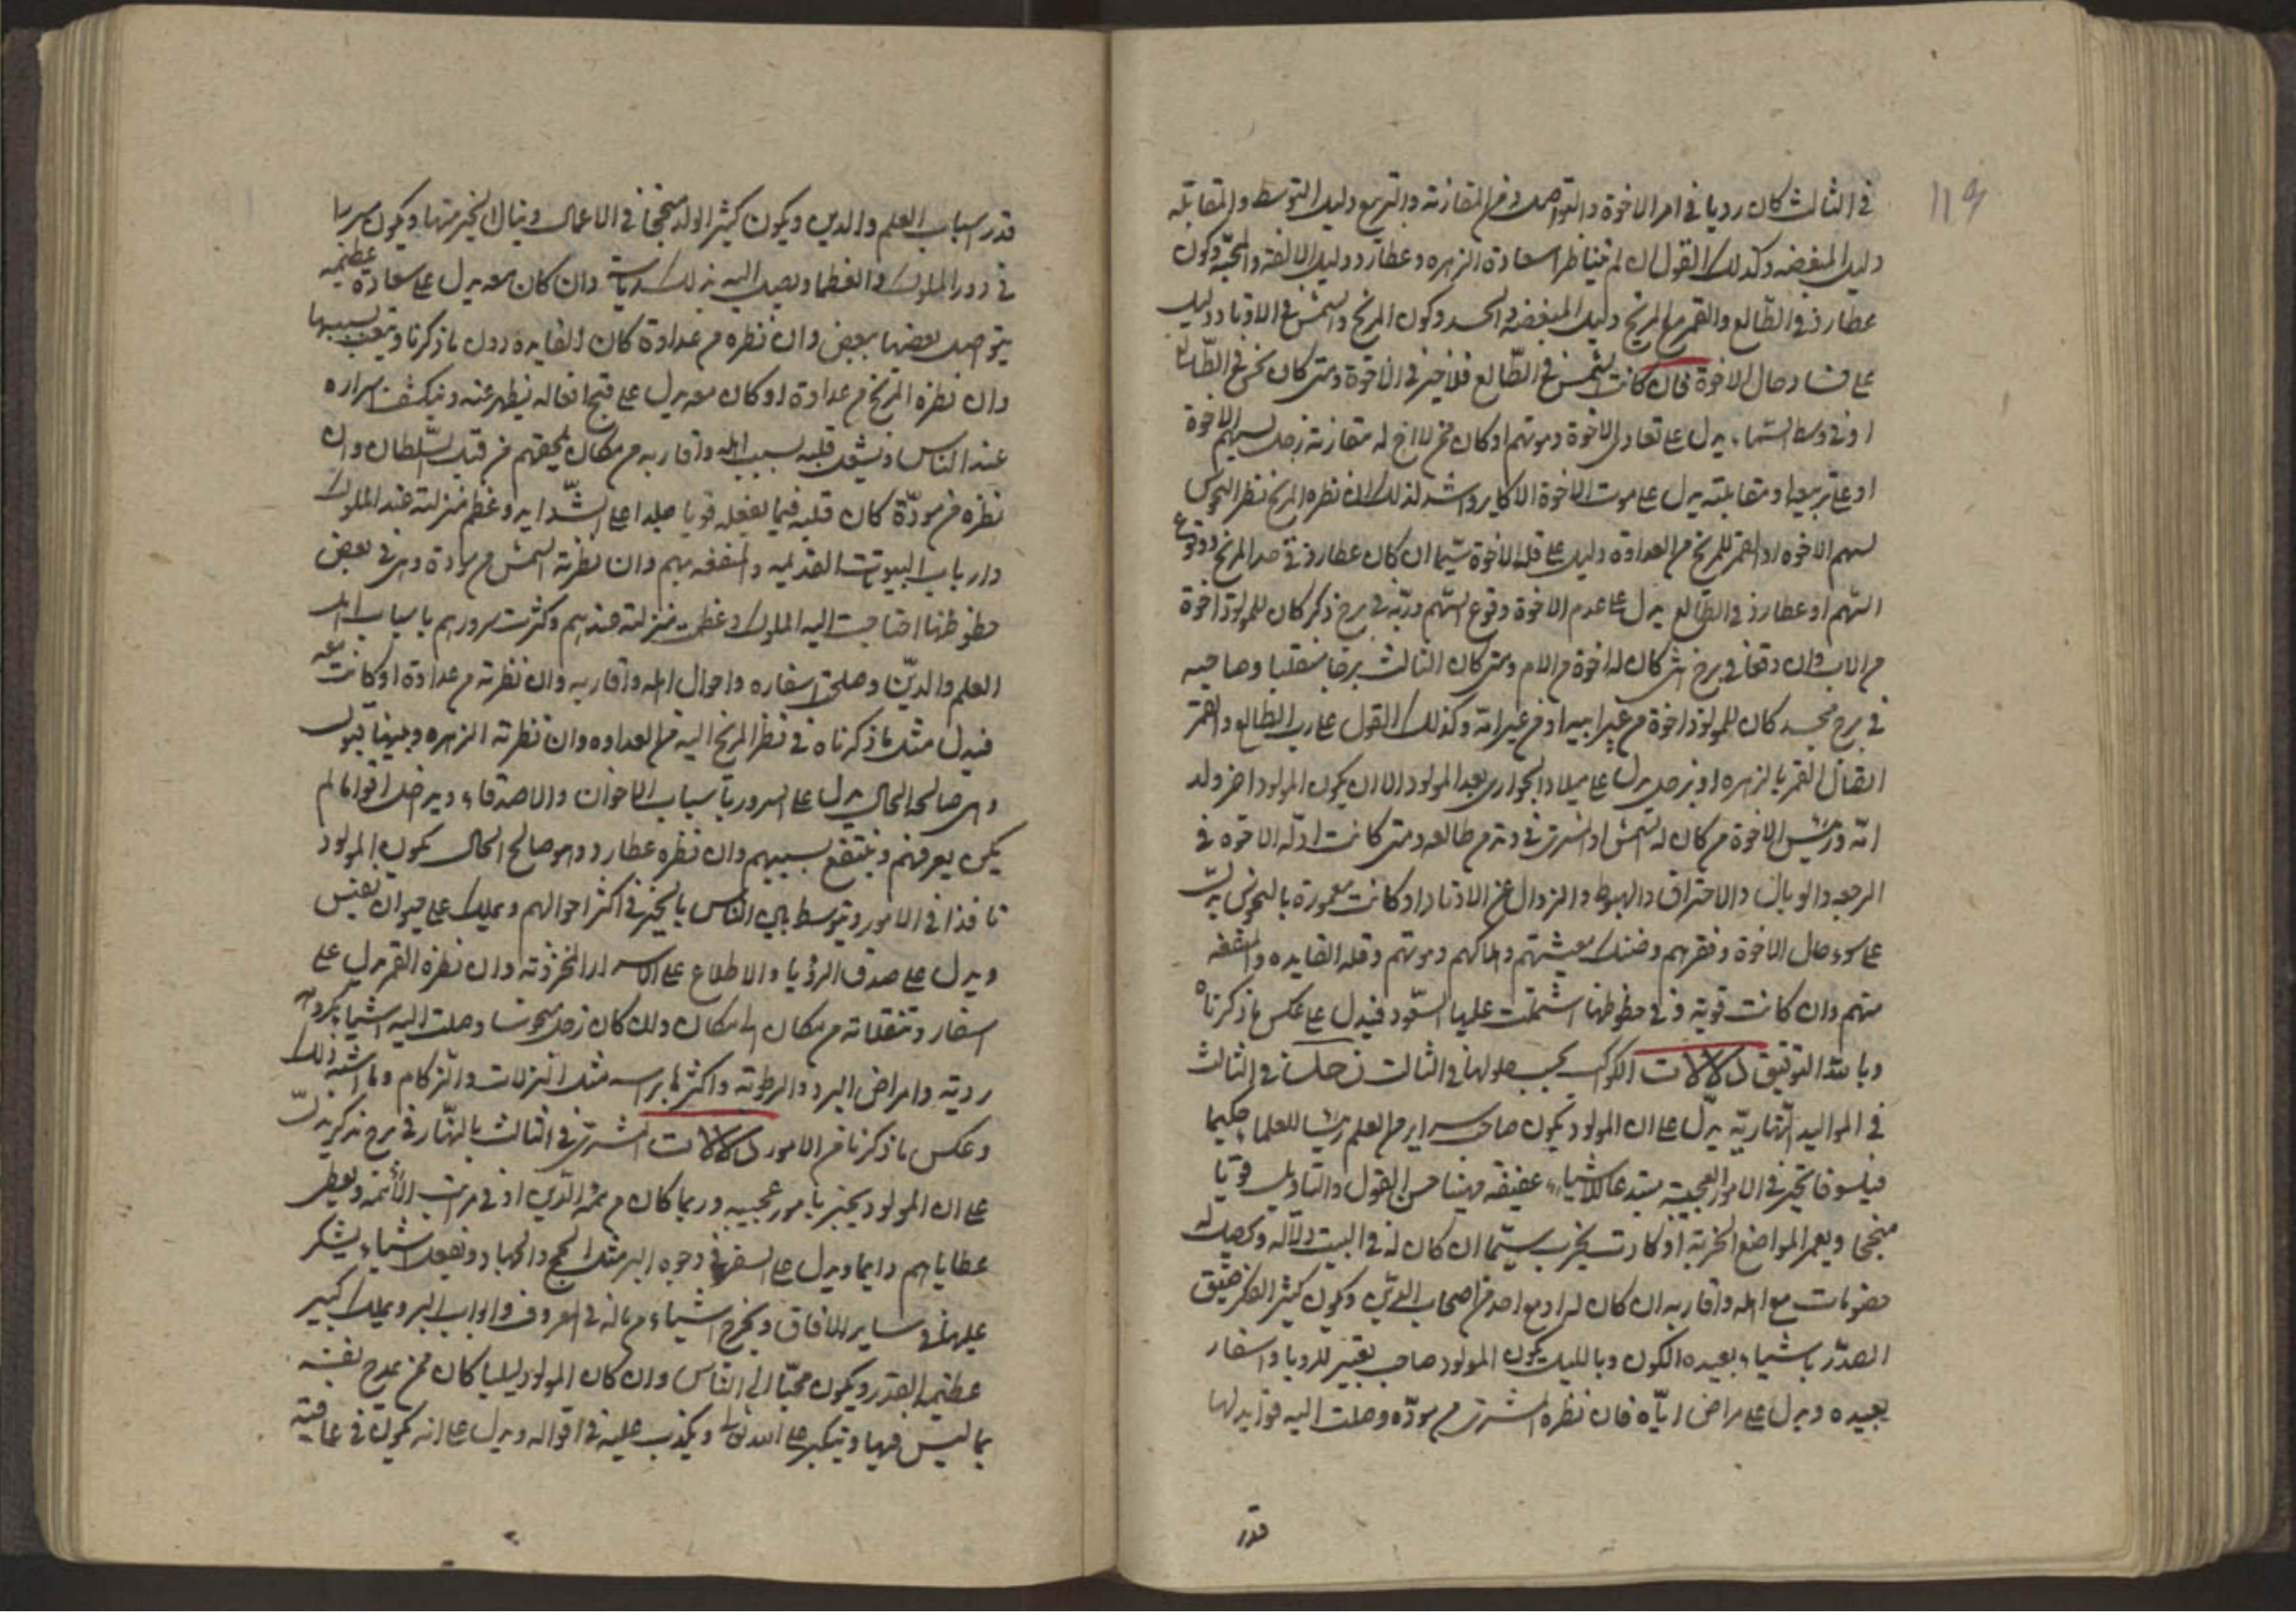 في الثالث كان رديا في امر الاخوة والتواصل وفي المقارنة والتربيع دليل التوسط والمقابلة
دليل المبغضه وكذلك القول ان لم تتناظر سعادة الزهره وعطارد دليل الالفة والمحبة وكون
عطارد في الطالع والقمر مع المريخ دليل المبغضه والحسد وكون المريخ والشمس في الاوتاد دليل
على فساد حال الاخوة فان كانت الشمس في الطالع فلا خير في الاخوة ومتى كان نحس في الطالع
او في وسط السماء يدل على تعادي الاخوة وموتهم او كان ممن لا اخ له مقارنة زحل لسهم الاخوة
او على تربيعه او مقابلته يدل على موت الاخوة الاكابر واشد لذلك ان نظره المريخ نظر النحوس
لسهم الاخوه او القمر للمريخ من العداوة دليل على قلة الاخوة سيما ان كان عطارد في حد المريخ ووقوع
السهم او عطارد في الطالع يدل على عدم الاخوة وقوع السهم وربه في برج ذكر كان للمولود اخوة
من الاب وان وقعا في برج انثى كان له اخوة من الام ومتى كان الثالث برجا منقلبا وصاحبه
في برج مجسد كان للمولود اخوة من غير ابيه او من غير امه وكذلك القول على رب الطالع والقمر
اتصال القمر بالزهره او بزحل يدل على ميلاد الجواري بعد المولود الا ان يكون المولود اخر ولد
امه ورئيس الاخوة من كان له الشمس او المشتري في وتد من طالعه ومتى كانت ادلة الاخوة في
الرجعه والوبال والاحتراق والهبوط والزوال عن الاوتاد او كانت مقهورة بالنحوس يدل
على سوء حال الاخوة وفقرهم وضنك معيشتهم وهلاكهم وموتهم وقلة الفايده والمنفعه
منهم وان كانت قوية وفي حظوظها اشتملت عليها السعود فيدل على عكس ما ذكرناه
وبالله التوفيق دلالات الكواكب بحسب حلولها في الثالث زحل في الثالث
في المواليد النهارية يدل على ان المولود يكون صاحب سراير من العلم رئيسا للعلماء حكيما
فيلسوفا يخبر في الامور العجيبة مبتدعا للاشياء عفيفه مهنيا حسن القول والتاويل قويا
منجحا ويعمر المواضع الخربة او كادت تخرب سيما ان كان له في البيت دلالة ويحصل له
خصومات مع اهله واقاربه ان كان له اومع احد من اصحاب الدين ويكون كثير الفكر ضيق
الصدر باشياء بعيده الكون وبالليل يكون المولود صاحب تعبير للرويا واسفار
بعيده ويدل على مراض اياه فان نظره المشتري من مودة وصلت اليه فوايد لها
قدر
قدر اسباب العلم والدين ويكون كثير الولد منجحا في الاعمال وينال الخير منها ويكون مدبرا
في دور الملوك والعظما ويصل اليه بذلك رياسة وان كان معه يدل على سعادة عظيمه
يتواصل بعضها ببعض وان نظره من عداوة كان الفايده دون ما ذكرنا ويتعب بسببها
وان نظره المريخ من عداوة او كان معه يدل على قبح افعاله يظهر عنه وتنكشف اسراره
عند الناس ويشتغل قلبه بسبب اهله واقاربه من مكان يلحقهم من قبل السلطان وان
نظره من مودة كان قلبه فيما يفعله قويا جلدا على الشدايد وعظم منزلته عند الملوك
وارباب البيوت القديمه والمنفعه بهم وان نظرته الشمس من مودة وهي في بعض
حظوظها احتاجت اليه الملوك وعظمت منزلته عندهم وكثرت سرورهم باسباب اهل
العلم والدين وصلحت اسفاره واحوال اهله واقاربه وان نظرته من عداوة او كانت معه
فيدل مثل ما ذكرناه في نظر المريخ اليه من العداوه وان نظرته الزهره وبينهما قبول
وهي صالحة الحال يدل على السرور باسباب الاخوان والاصدقاء ويدخل اقواما لم
يكن يعرفهم وينتفع بسببهم وان نظره عطارد وهو صالح الحال يكون المولود
نافذا في الامور ويتوسط بين الناس بالخير في اكثر احوالهم ويملك على حيوان نفيس
ويدل على صدق الرؤيا والاطلاع على الاسرار المخزونة وان نظره القمر يدل على
اسفار وتنقلاته من مكان الى مكان وان كان زحل منحوسا وصلت اليه اشياء مكروهة
ردية وامراض البرد والرطوبة واكثرها براسه مثل النزلات والزكام وما اشبه ذلك
وعكس ما ذكرنا من الامور دلالات المشتري في الثالث بالنهار في برج مذكر يدل
على ان المولود يخبر بامور عجيبه وربما كان من ائمة الدين او في مراتب الائمة ويعطى
عطاياهم دايما ويدل على السفر في وجوه البر مثل الحج والجهاد ويفعل اشياء يشكر
عليها في ساير الافاق ويخرج اشياء من ماله في المعروف وابواب البر ويملك كبير
عظيم القدر ويكون محببا الى الناس وان كان المولود ليليا كان ممن يمدح نفسه
بما ليس فيها ويتكبر على الله تعالى ويكذب عليه في اقواله ويدل على انه يكون في عافية